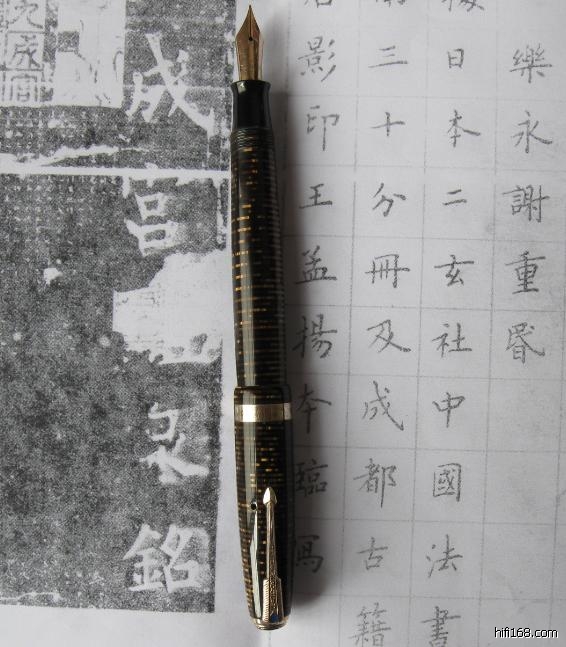 樂永謝重
日本二玄社中國法書
三十分冊及成都古籍
影印王孟揚本臨寫
成宮
泉銘
hifi168.com